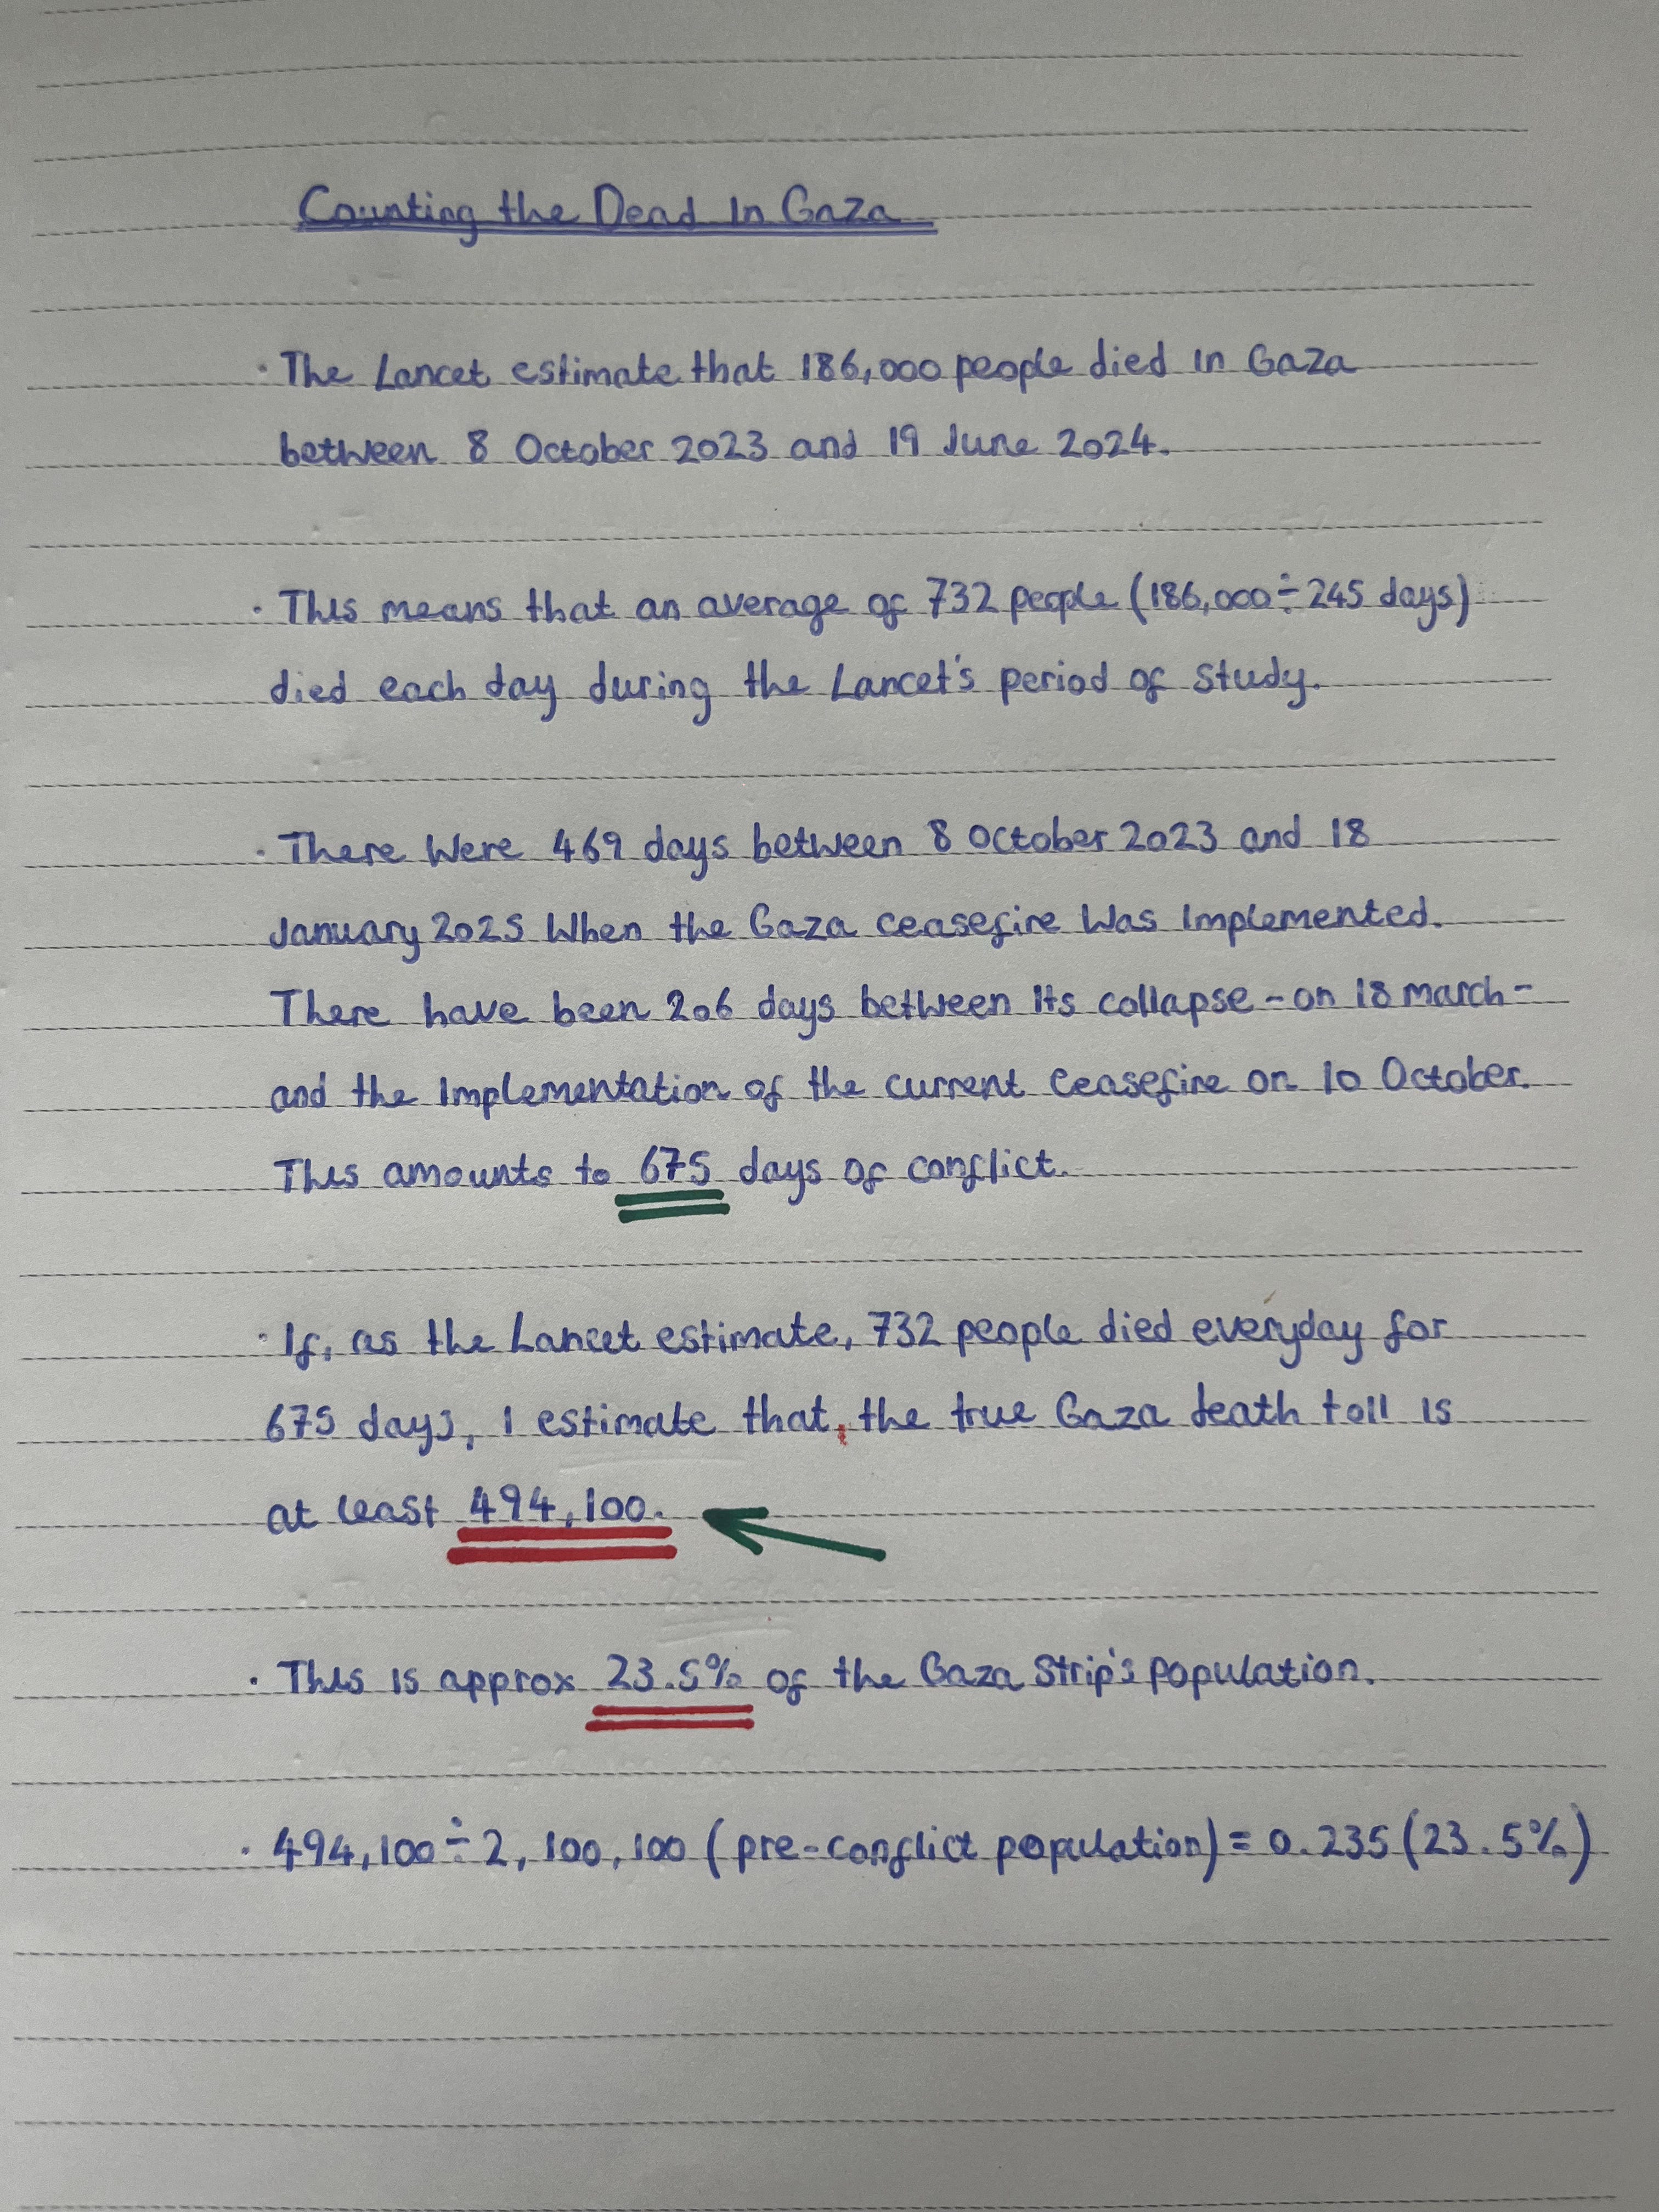 Counting the Dead In Gaza
· The Lancet estimate that 186,000 people died in Gaza
between 8 October 2023 and 19 June 2024.
· This means that an average of 732 people (186,000÷245 days)
died each day during the Lancet's period of study.
· There were 469 days between 8 October 2023 and 18
January 2025 when the Gaza ceasefire was implemented.
There have been 206 days between its collapse - on 18 march -
and the implementation of the current ceasefire on 10 October.
This amounts to 675 days of conflict.
· If, as the Lancet estimate, 732 people died everyday for
675 days, I estimate that, the true Gaza death toll is
at least 494,100.
· This is approx 23.5% of the Gaza Strip's population.
· 494,100÷2,100,100 (pre-conflict population) = 0.235 (23.5%)